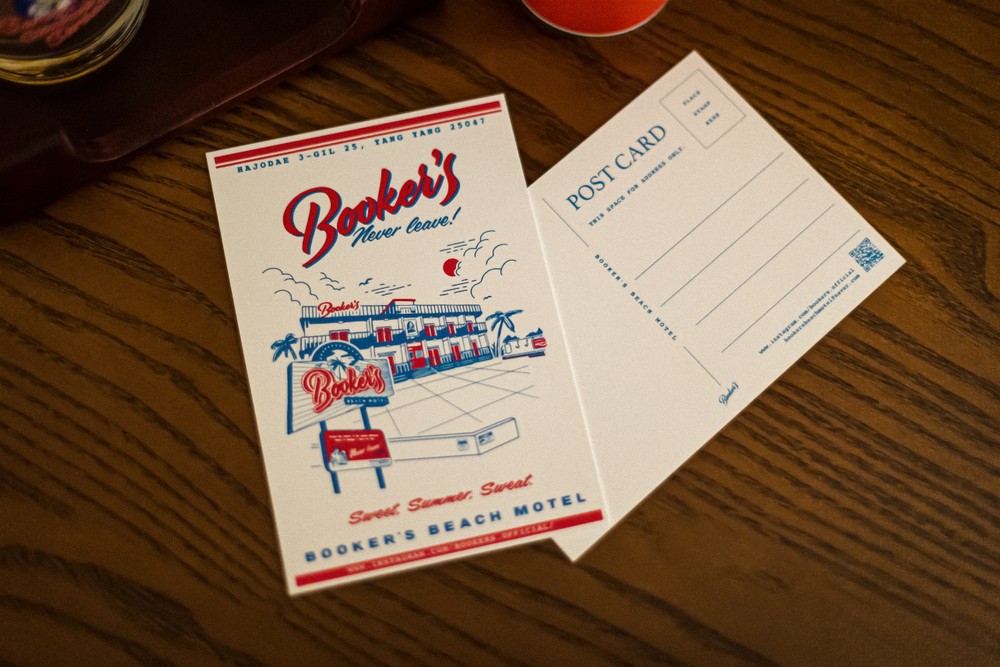 HAJODAE 3-GIL 25, YANG YANG 25047
Booker's
Never leave!
Booker's
Booker's
BEACH MOTEL
Never leave!
Sweet. Summer. Sweat.
BOOKER'S BEACH MOTEL
WWW.INSTAGRAM.COM/BOOKERS.OFFICIAL/
PLACE
STAMP
HERE
POST CARD
THIS SPACE FOR ADDRESS ONLY.
BOOKER'S BEACH MOTEL
www.instagram.com/bookers.official
bookersbeachmotelforever.com
Booker's